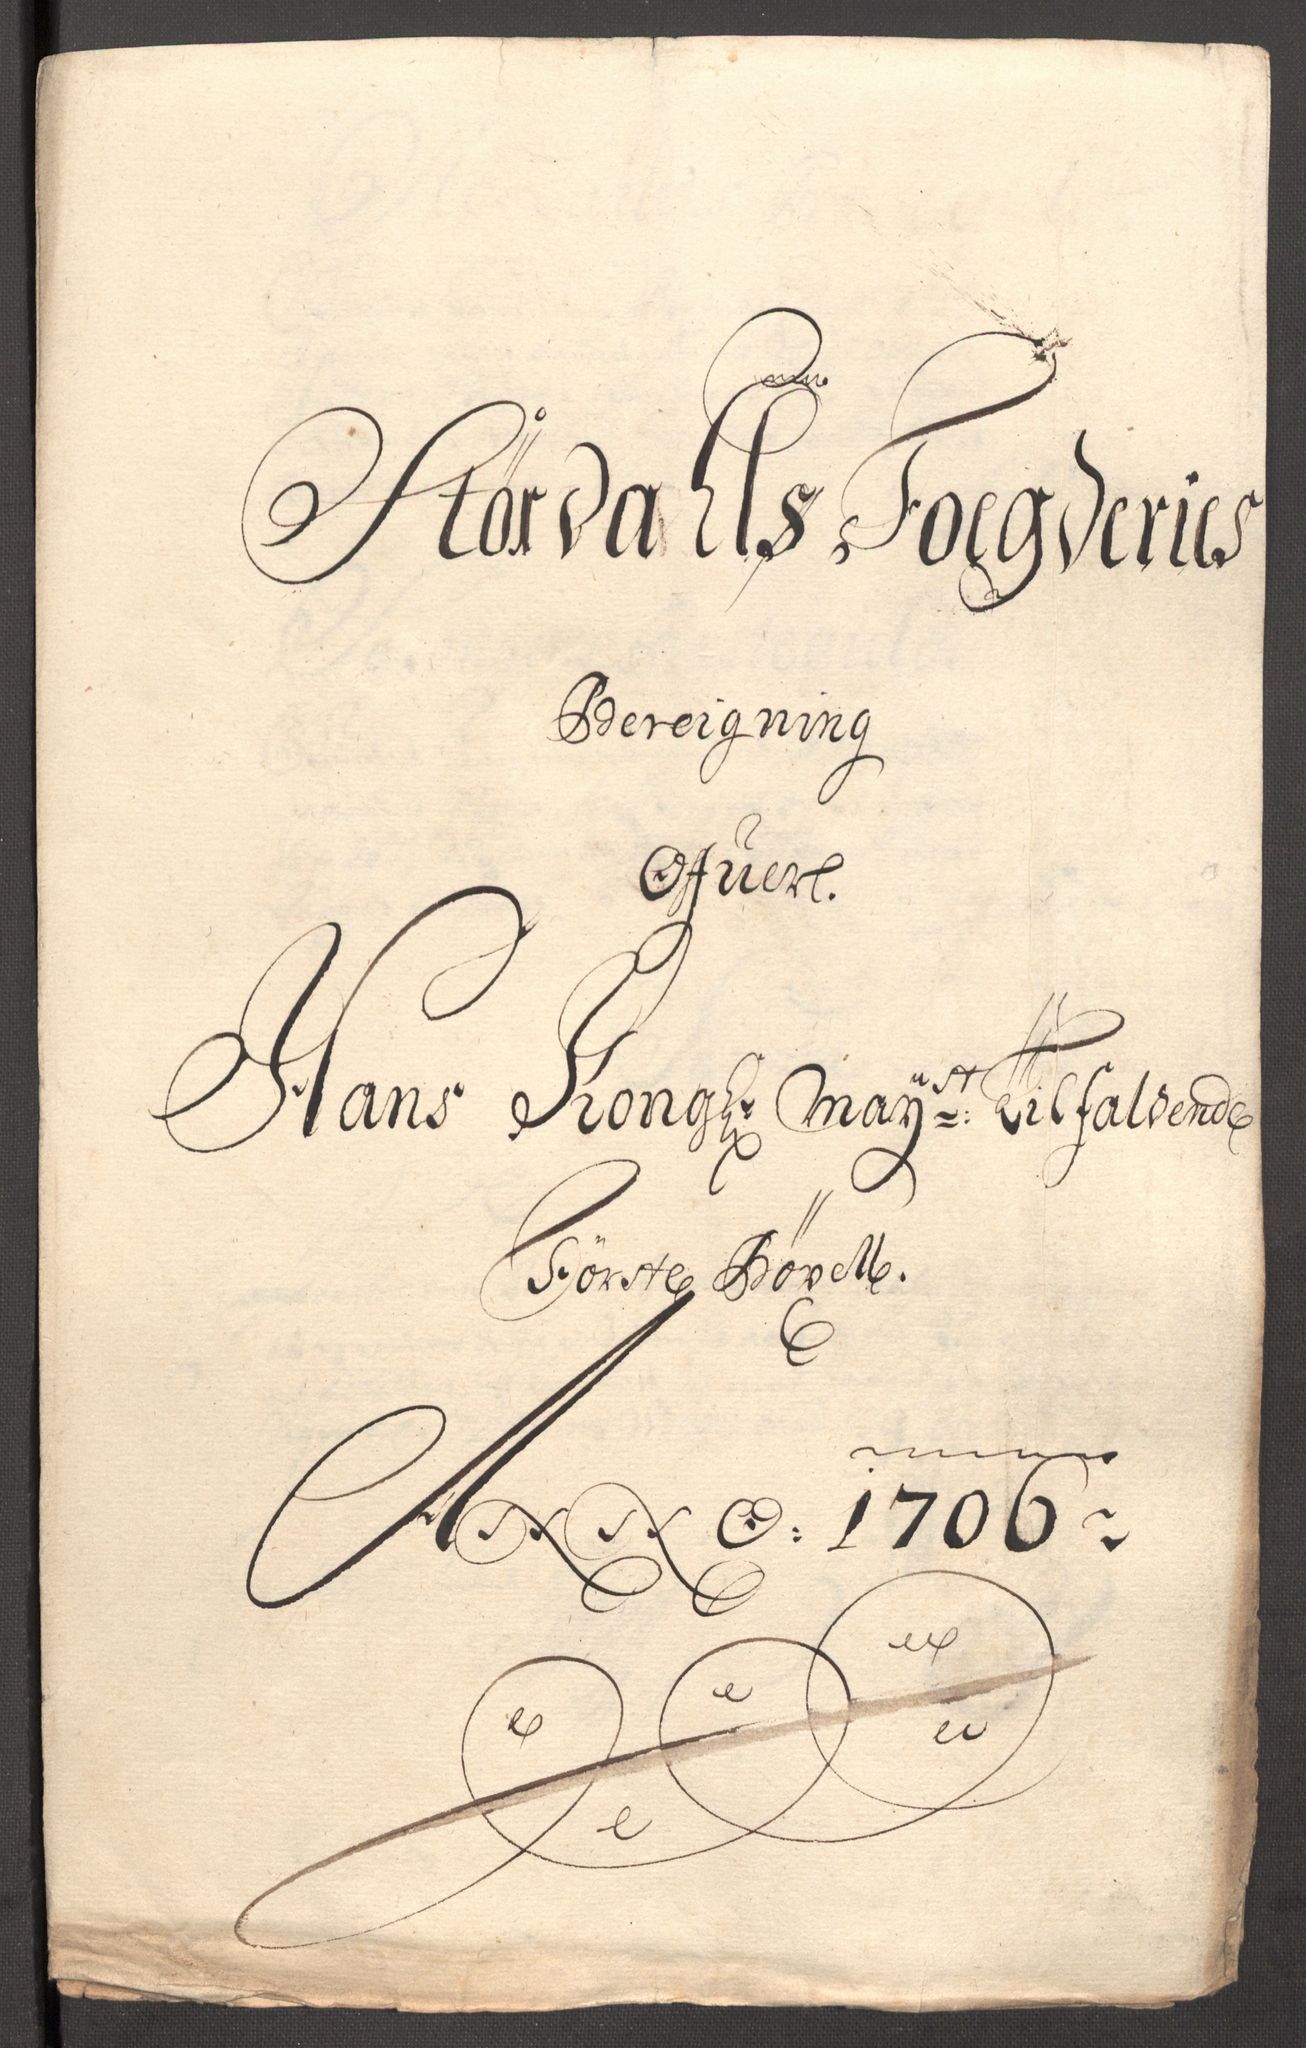 Størdahls Foegderies
Bereigning
Ofuer.
Hans Kongl: May:st: tilfaldende
Förste Bøxell.
ANNO: 1706